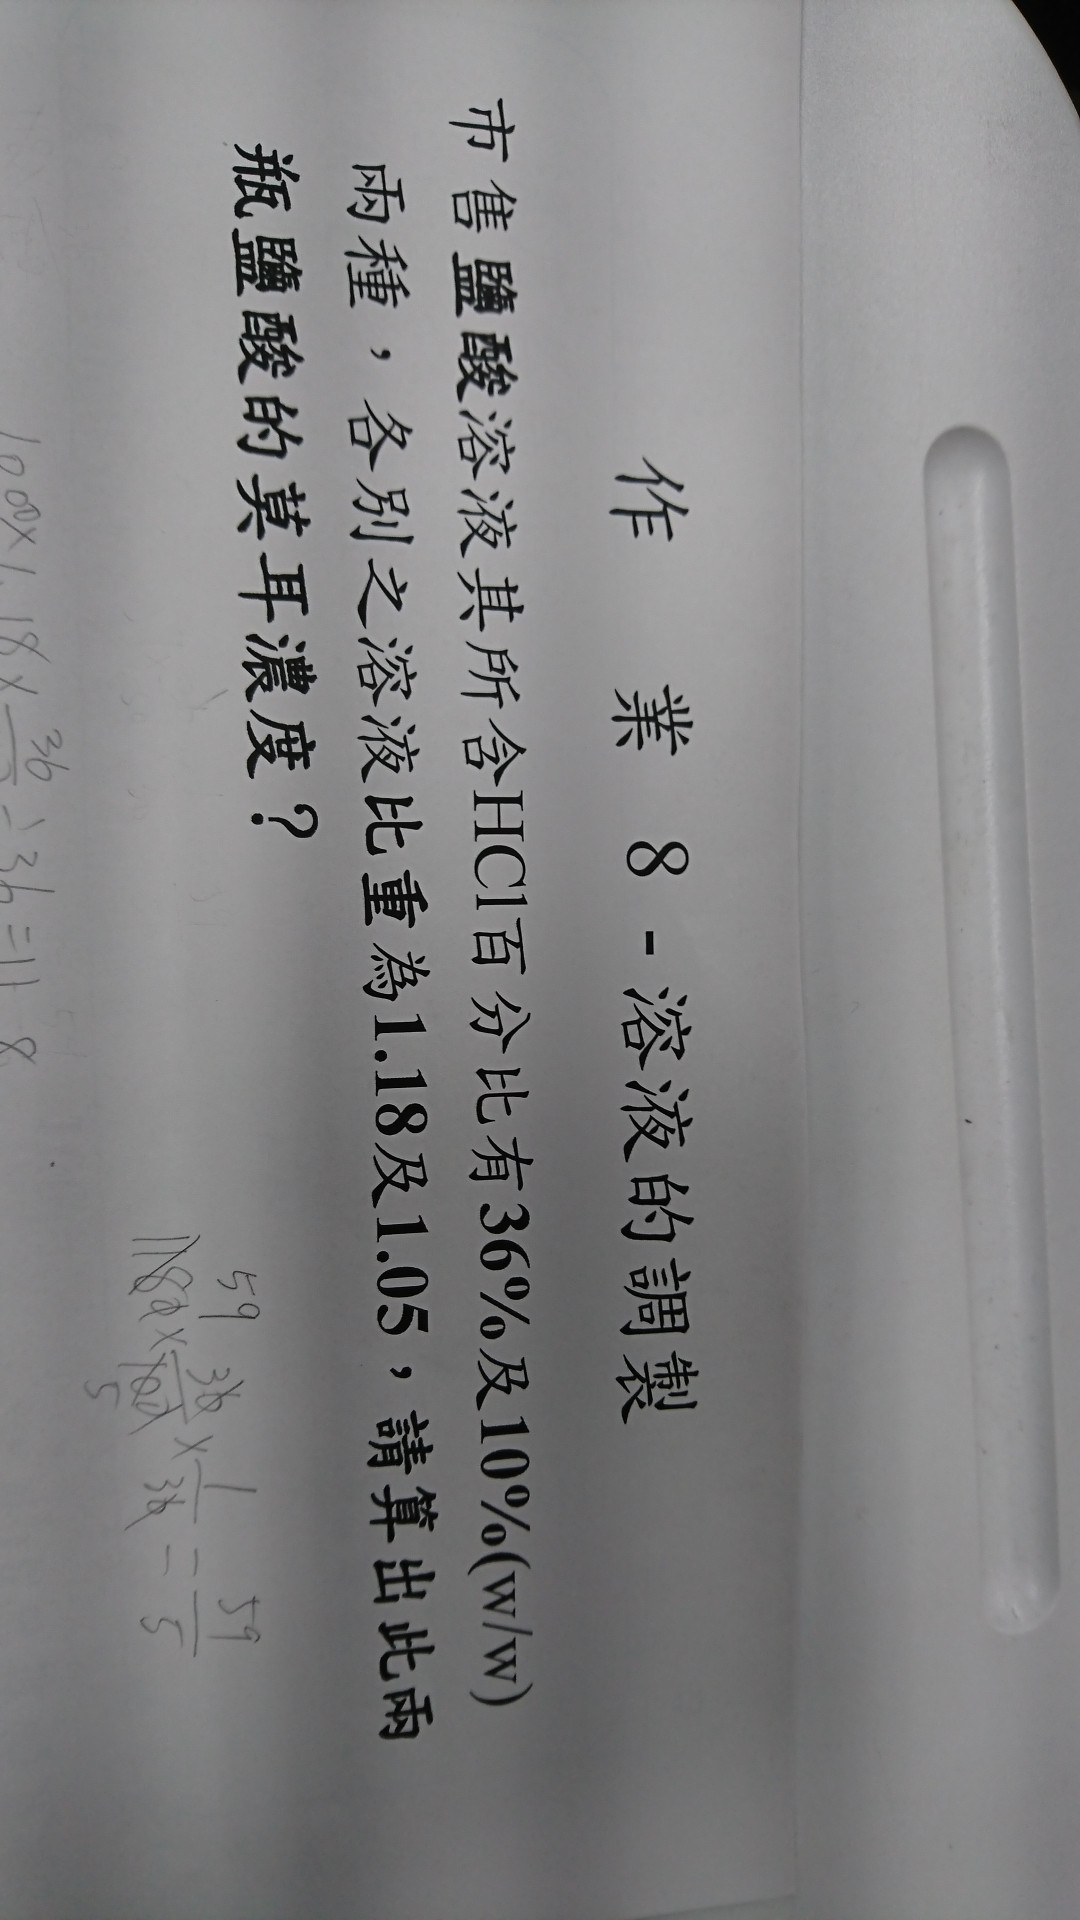 作 業 8 - 溶液的調製
市售鹽酸溶液其所含HCl百分比有36%及10%(w/w)
兩種，各別之溶液比重為1.18及1.05，請算出此兩
瓶鹽酸的莫耳濃度？
59
1182 × 36/100 × 1/36 = 59/5
5
1000×1.18×36/
÷36=11.8